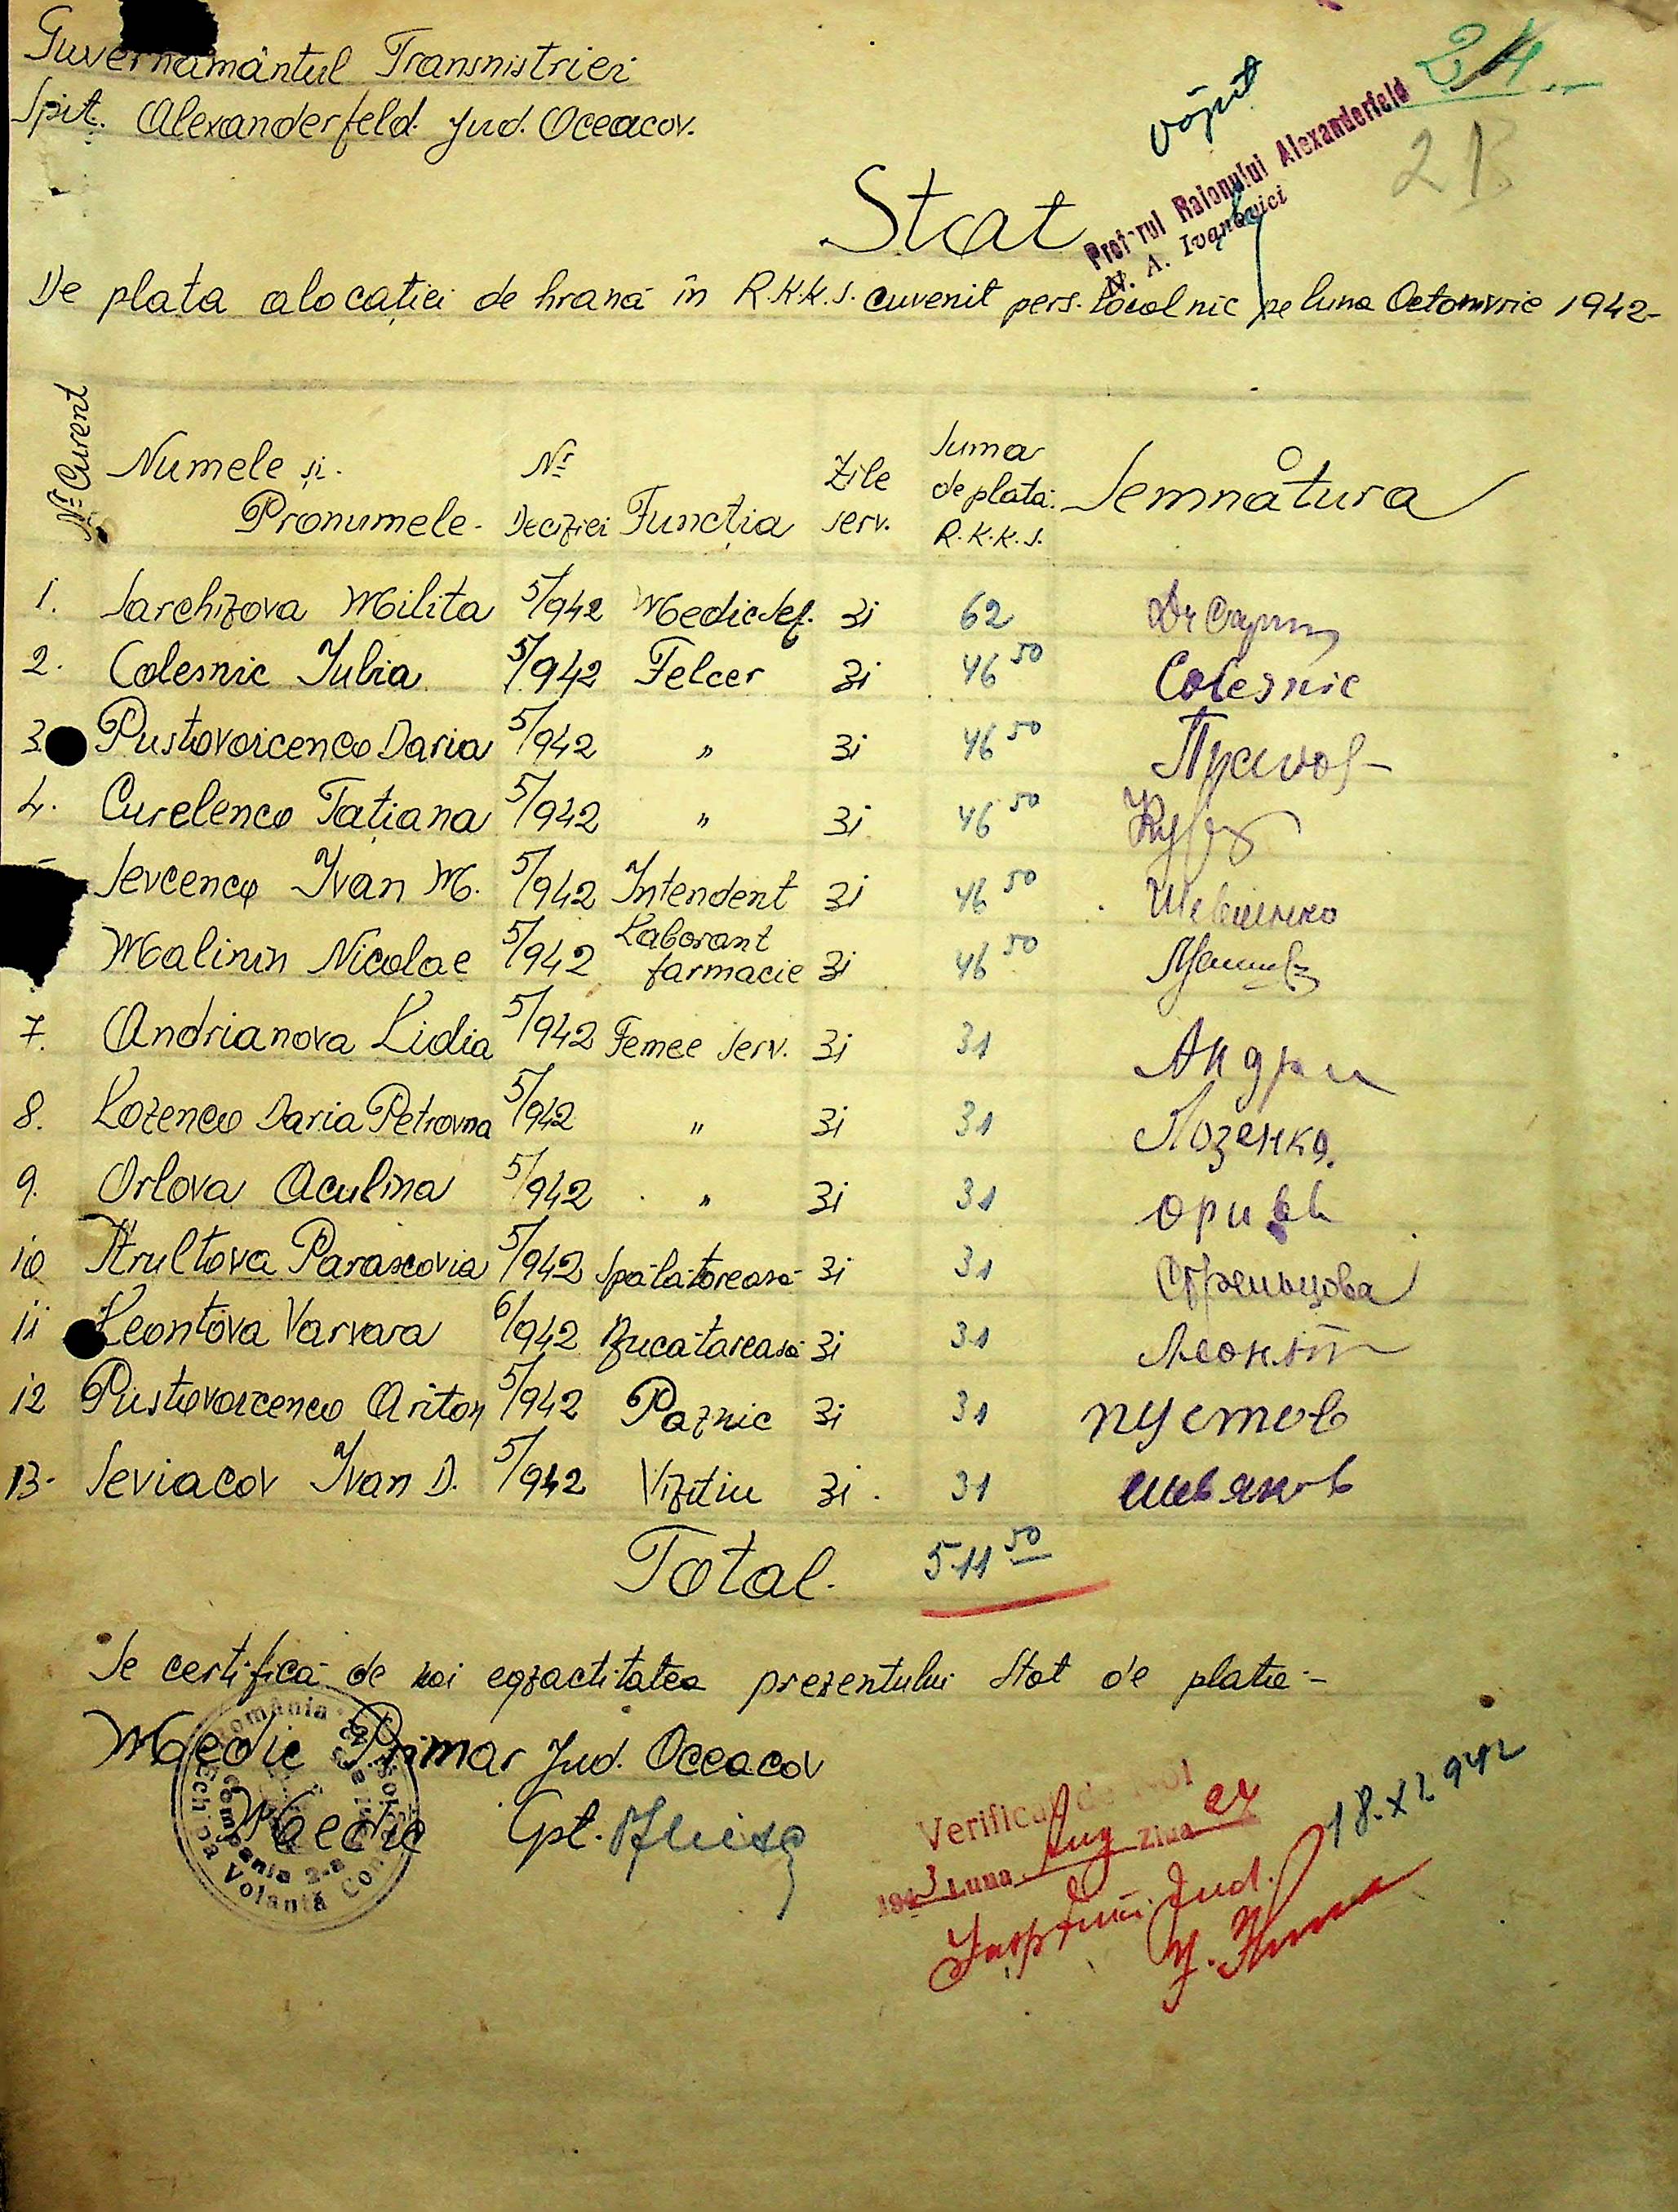 Guvernământul Transnistriei
Spit. Alexanderfeld. Jud. Oceacov.
văzut
24
21
Pretorul Raionului Alexanderfeld
N. A. Ivanovici
Stat
De plata alocației de hrană în R.K.K.S. cuvenit pers. localnic pe luna Octomvrie 1942-
Nr. Curent Numele și Pronumele- Nr. Deciziei Funcția Zile serv. Suma de plată: R.K.K.S. Semnătura
1. Sarchizova Milita 5/942 Medic Șef. 31 62 Dr
2. Colesnic Iulia 5/942 Felcer 31 46 50 Colesnic
3. Pustovoicenco Daria 5/942 " 31 46 50
4. Curelenco Tațiana 5/942 " 31 46 50
Sevcenco Ivan M. 5/942 Intendent 31 46 50 Шевченко
Malinin Nicolae 5/942 Laborant farmacie 31 46 50
7. Andrianova Lidia 5/942 Femee serv. 31 31 Андри
8. Lozenco Daria Petrovna 5/942 " 31 31 Лозенко.
9. Orlova Aculina 5/942 " 31 31
10 Strultova Parascovia 5/942 Spălătoreasă 31 31 Стрельцова
11 Leontova Varvara 6/942 Bucatareasă 31 31 Леонт
12 Pustovoicenco Ariton 5/942 Paznic 31 31 пустов
13. Seviacov Ivan D. 5/942 Vizitiu 31. 31 шевяков
Total. 511 50
Se certifică de noi eqzactitatea prezentului stat de plată-
Medic Primar Jud. Oceacov
Medic Cpt.
România
Echipa Volantă
Compania 2-a
Verificat de NOI
1943 Luna Aug Ziua
18. XI 942
Jud.